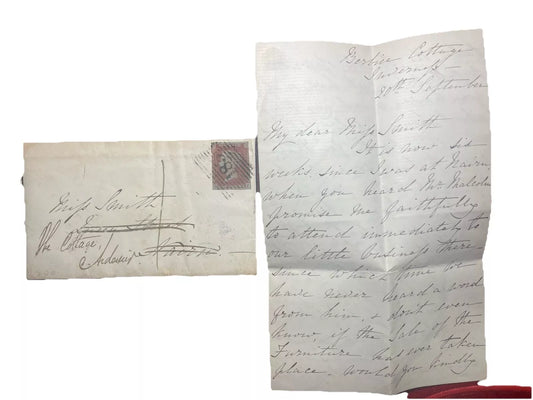 Miss Smith
The Cottage,
Nairn
Cottage
Inverness
20th September
My dear Miss Smith
It is now six
weeks, since I was at Nairn
when you heard Mr Malcolm
promise me faithfully
to attend immediately to
our little business there -
since which time we
have never heard a word
from him, & don't even
know, if the Sale of the
Furniture has ever taken
place - Would you kindly